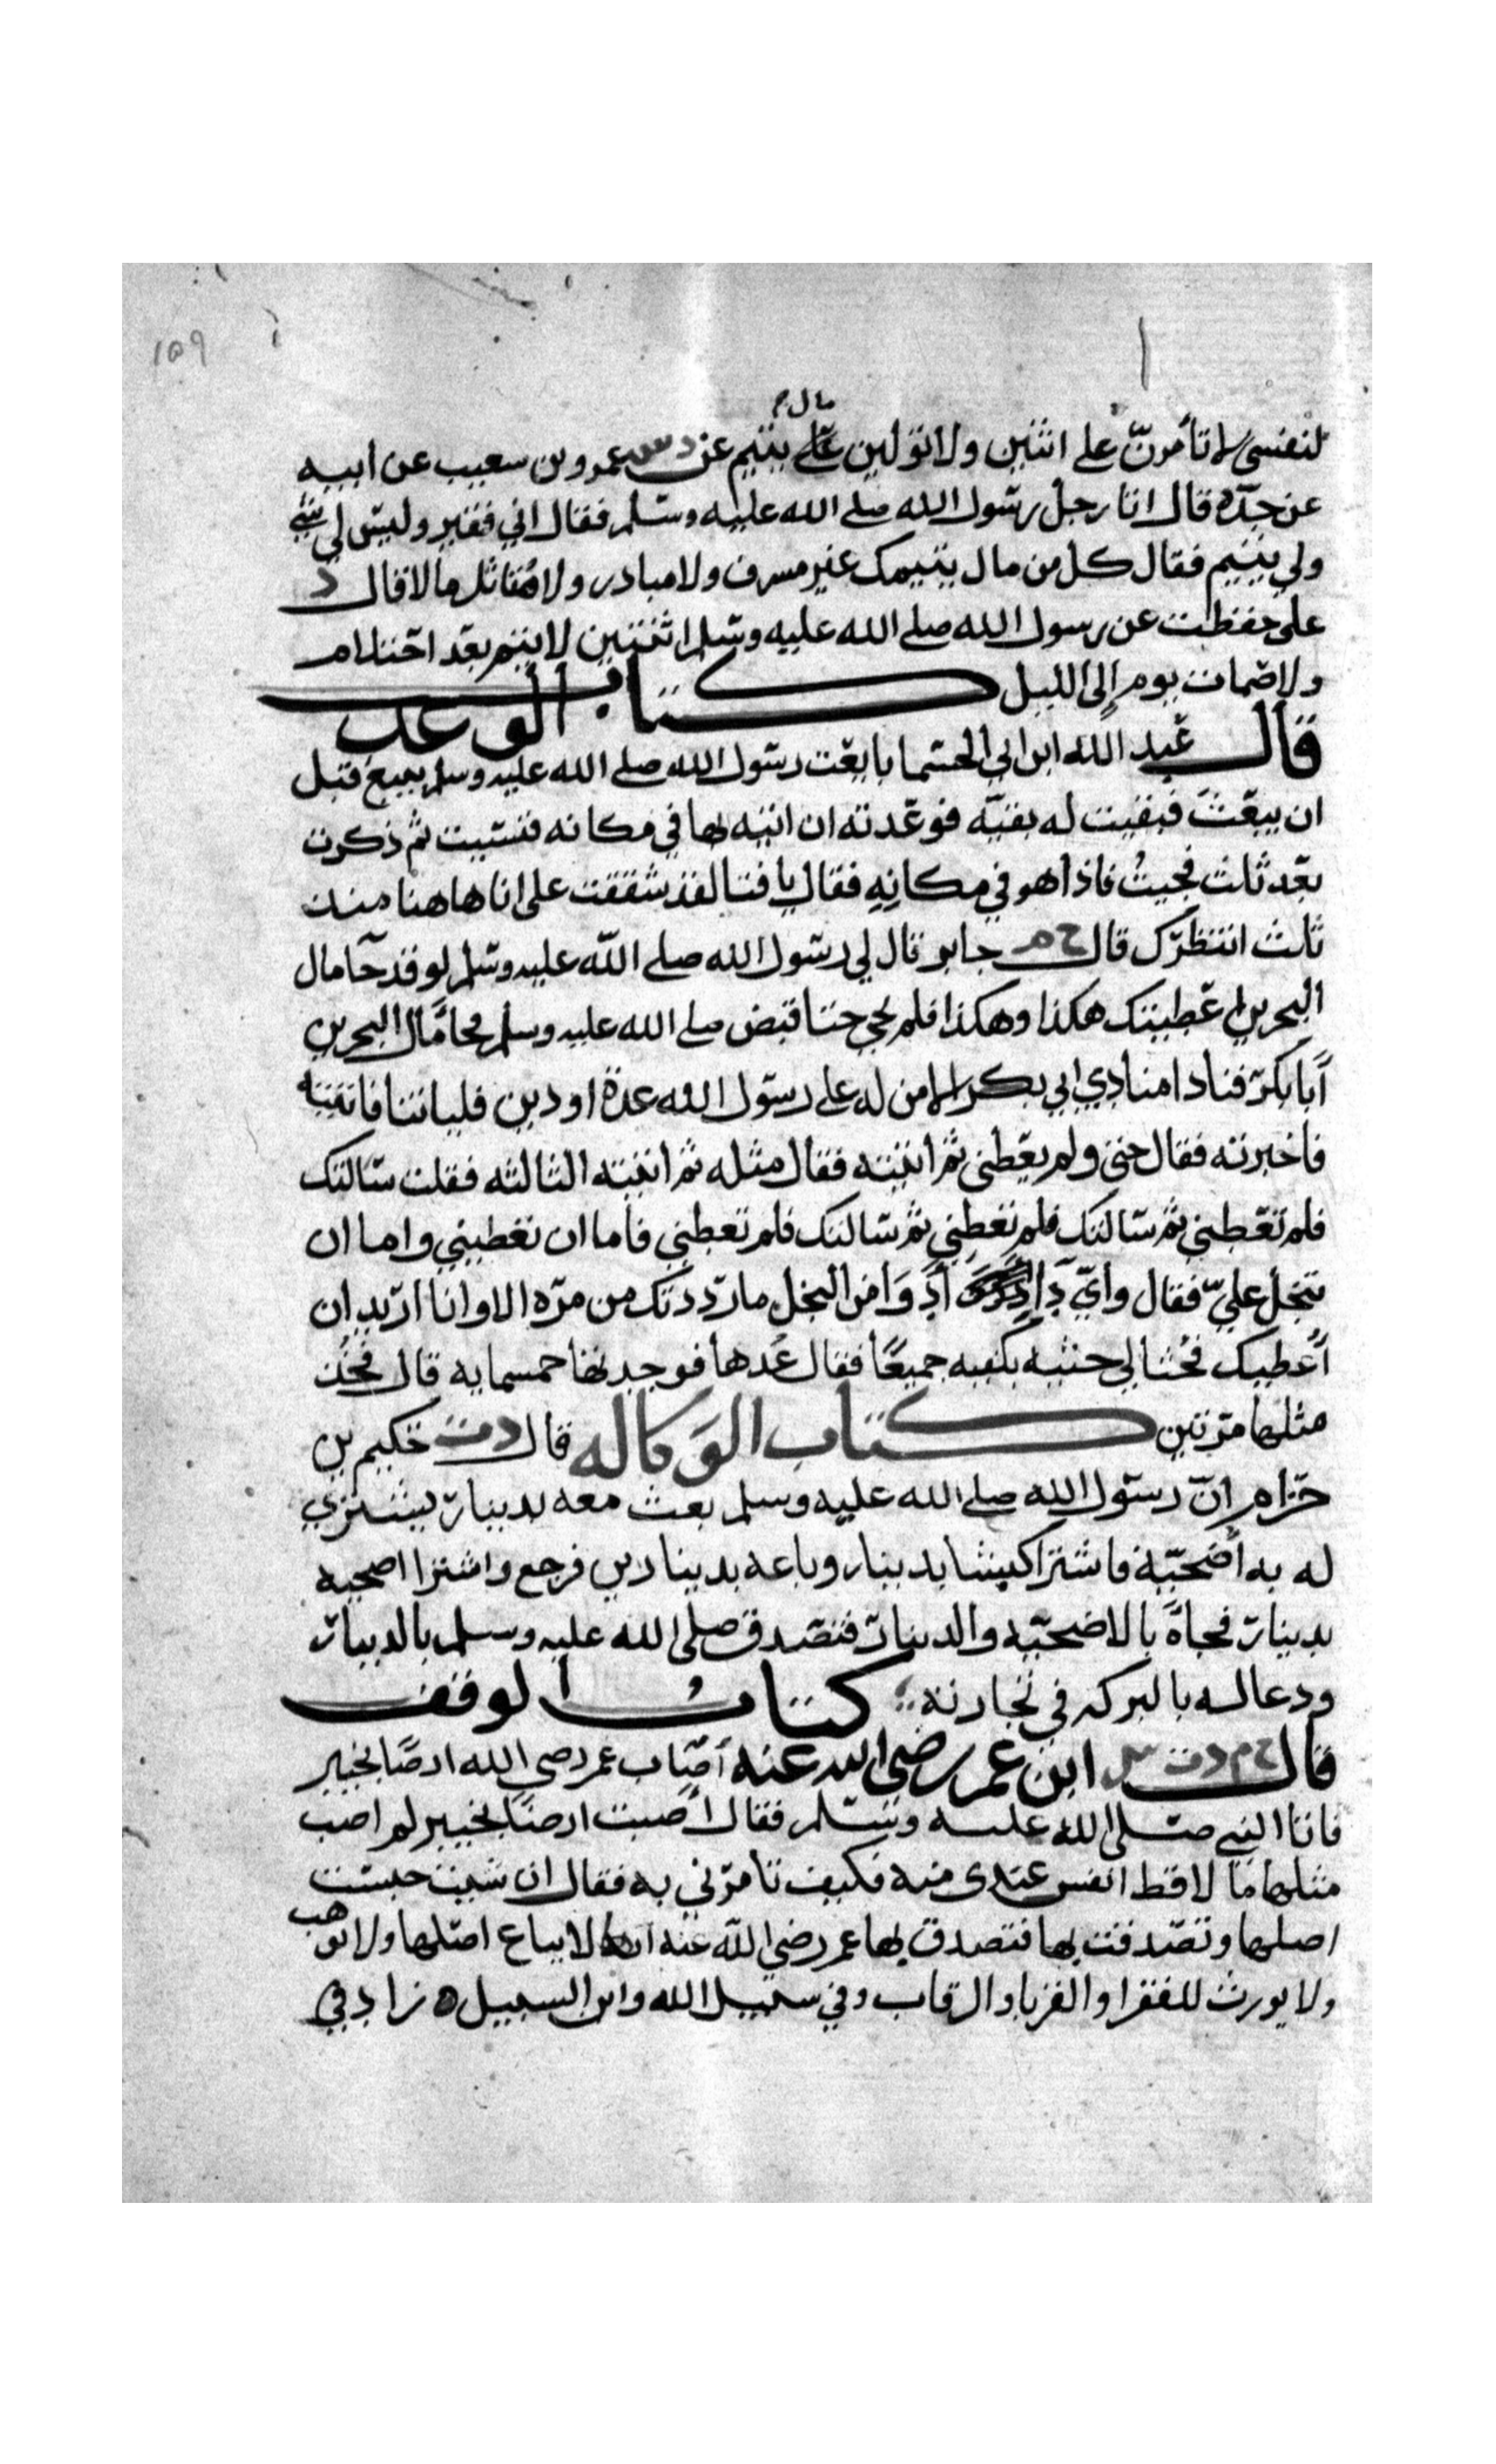 ١٥٩
مال م
لنفسي لا تأمرنّ على اثنين ولا تولين على يتيم عن د س عمرو بن سعيب عن ابيه
عن جدّه قال اتا رجل رسول الله صلى الله عليه وسلم فقال اني فقير وليس لي شي
ولي يتيم فقال كل من مال يتيمك غير مسرف ولا مبادر ولا مُتاثل مالا قال د
على حفظت عن رسول الله صلى الله عليه وسلم اثنتين لا يتم بعد احتلام
ولا صمات يوم إلى الليل كتاب الوعد
قال عبد الله ابن ابي الحسما بايعت رسول الله صلى الله عليه وسلم ببيع قبل
ان يبعث فبقيت له بقيّه فوعدته ان اتيه بها في مكانه فنسيت ثم ذكرت
بعد ثلث فجيتُ فاذا هو في مكانِهِ فقال يا فتا لقد شققت على انا هاهنا منذ
ثلث انتظرك قال خ م جابر قال لي رسول الله صلى الله عليه وسلم لو قد جا مال
البحرين اعطيتك هكذا وهكذا فلم يجي حتا قبض صلى الله عليه وسلم فجا مال البحرين
أبا بكر فنادا منادي ابي بكر الا من له على رسول الله عدة او دين فلياتنا فاتيته
فاخبرته فقال حتى ولم يعطني ثم اتيته فقال مثله ثم اتيته الثالثه فقلت سالتك
فلم تعطني ثم سالتك فلم تعطني ثم سالتك فلم تعطني فاما ان تعطيني واما ان
تبخل عليّ فقال وأيّ دَاءٍ أدوَا من البخل ما رددتك من مرّه الا وانا اريد ان
أعطيك فحثا لي حثيه بكفيه جميعًا فقال عُدها فوجدتها خمسمايه قال فخُذ
مثلها مرتين كتاب الوَكاله قال د ت حكيم بن
حزام انّ رسول الله صلى الله عليه وسلم بعث معه بدينار يشتري
له به أضحيّة فاشترا كبشا بدينار وباعه بدينارين فرجع واشترا اضحيه
بدينار فجاة بالاضحيّه والدينار فتصدق صلى الله عليه وسلم بالدينار
ودعا له بالبركه في تجارته كتاب الوقف
قال خ م د ت س ابن عمر رضي الله عنه أصاب عمر رضي الله ارضًا بخيبر
فاتا النبي صلى الله عليه وسلم فقال أصبت ارضًا بخيبر لم اصب
مثلها مالا قط انفس عندى منه فكيف تامرني به فقال ان شيت حبست
اصلها وتصدقت بها فتصدق بها عمر رضي الله عنه انه لا يباع اصلها ولا توهب
ولا يورث للفقرا والقربا والرقاب وفي سبيل الله وابن السبيل ه زاد في